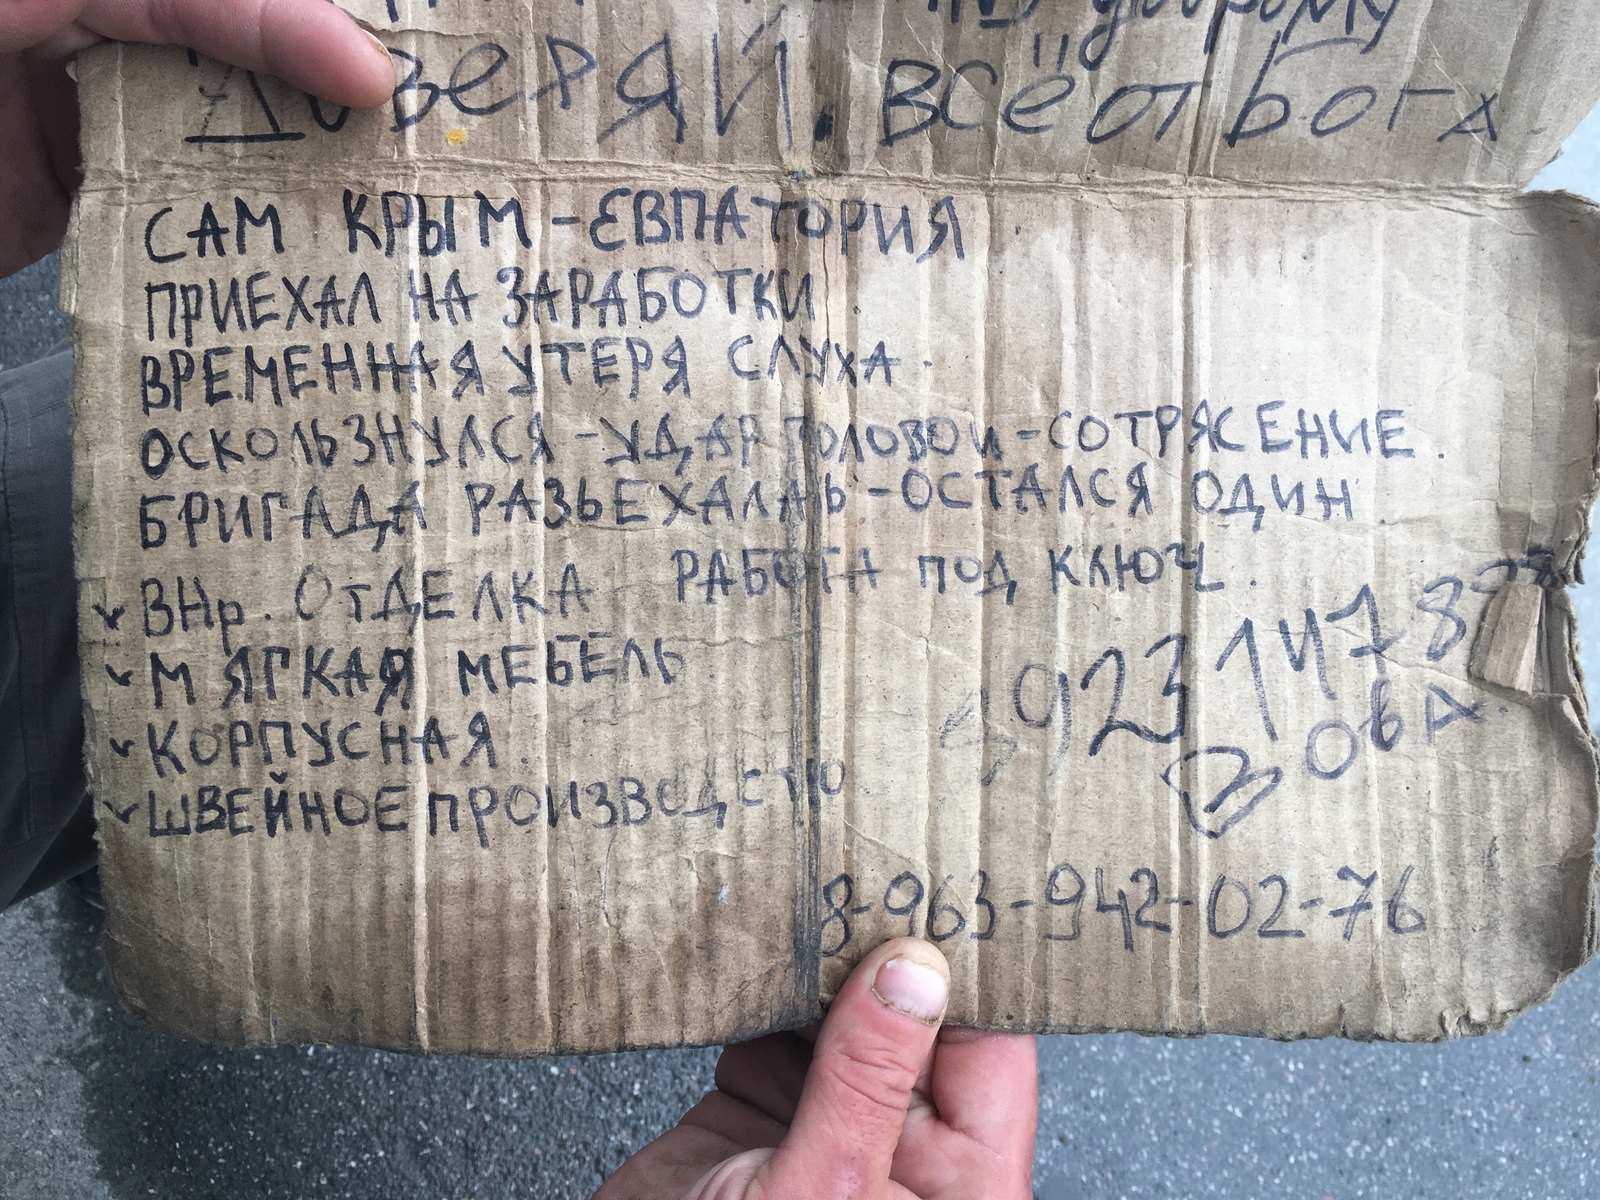 доброму
Доверяй. всё от Бога
САМ КРЫМ-ЕВПАТОРИЯ
ПРИЕХАЛ НА ЗАРАБОТКИ.
ВРЕМЕННАЯ УТЕРЯ СЛУХА.
ОСКОЛЬЗНУЛСЯ-УДАР ГОЛОВОЙ-СОТРЯСЕНИЕ.
БРИГАДА РАЗЬЕХАЛАЬ-ОСТАЛСЯ ОДИН
ВНр. ОТДЕЛКА - РАБОТА ПОД КЛЮЧ.
МЯГКАЯ МЕБЕЛЬ
КОРПУСНАЯ.
ШВЕЙНОЕ ПРОИЗВОДСТО
8-963-942-02-76